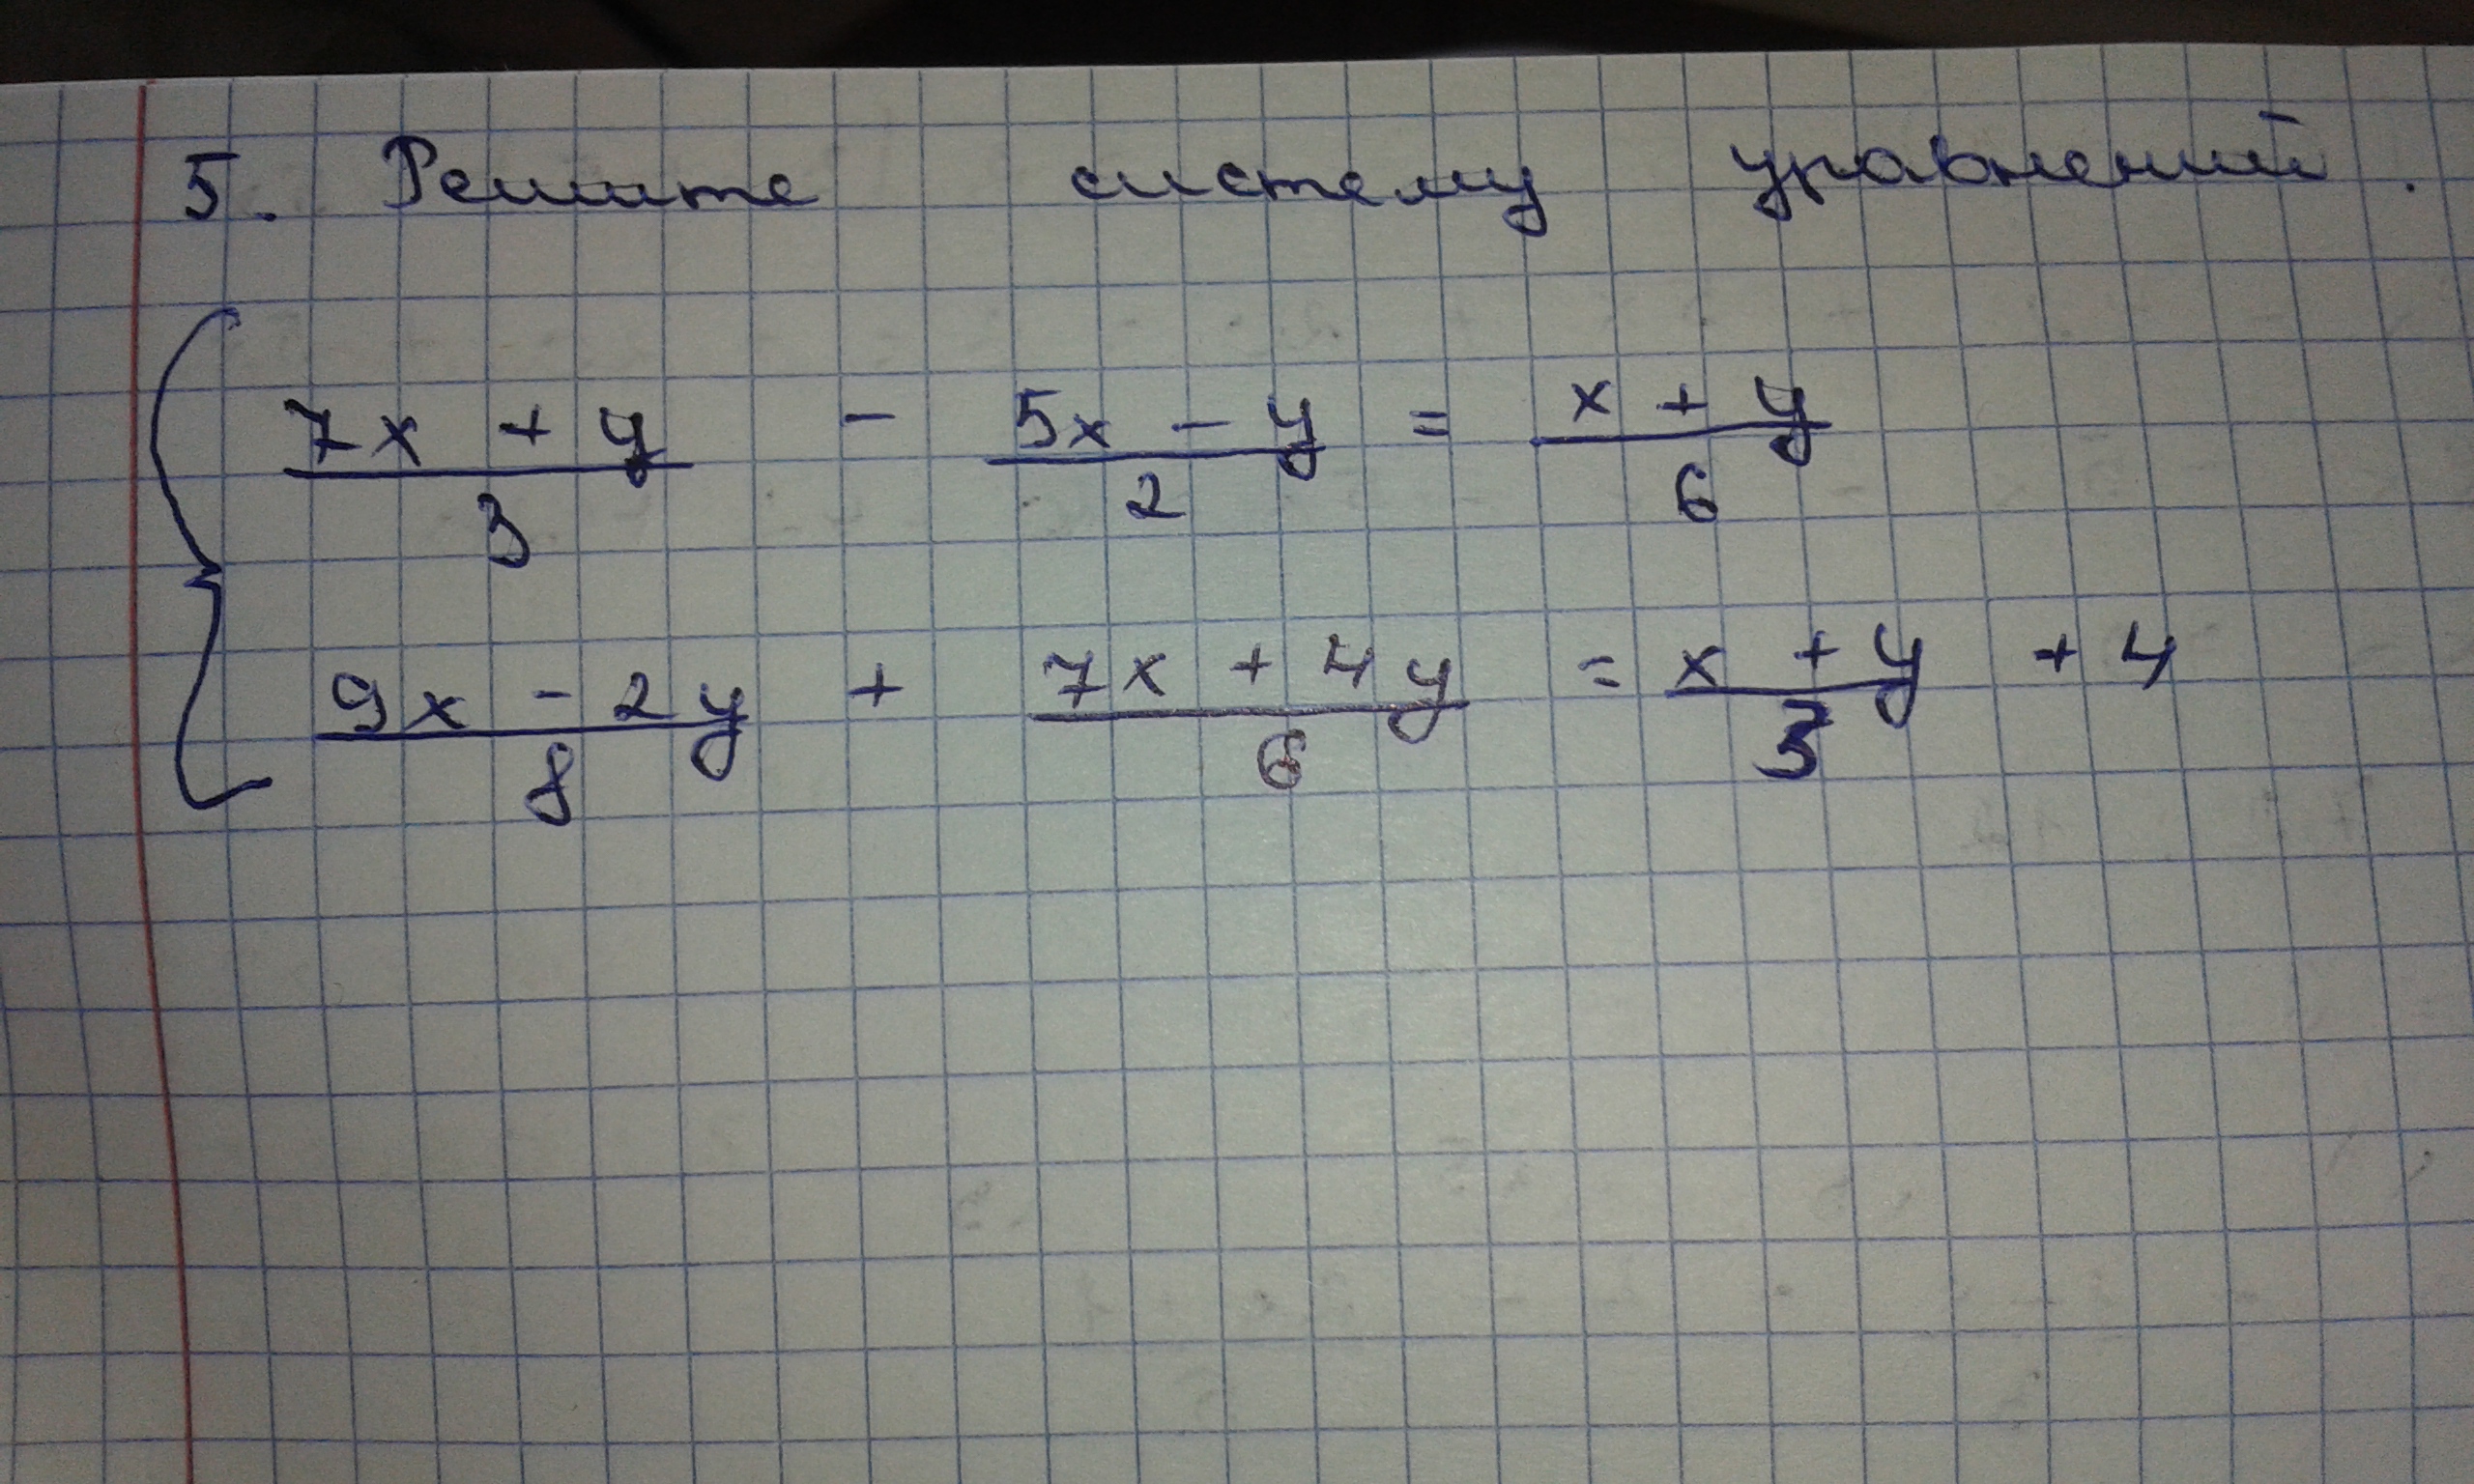 5. Решите систему уравнений.
7x + y / 3 - 5x - y / 2 = x + y / 6
9x - 2y / 8 + 7x + 4y / 6 = x + y / 3 + 4